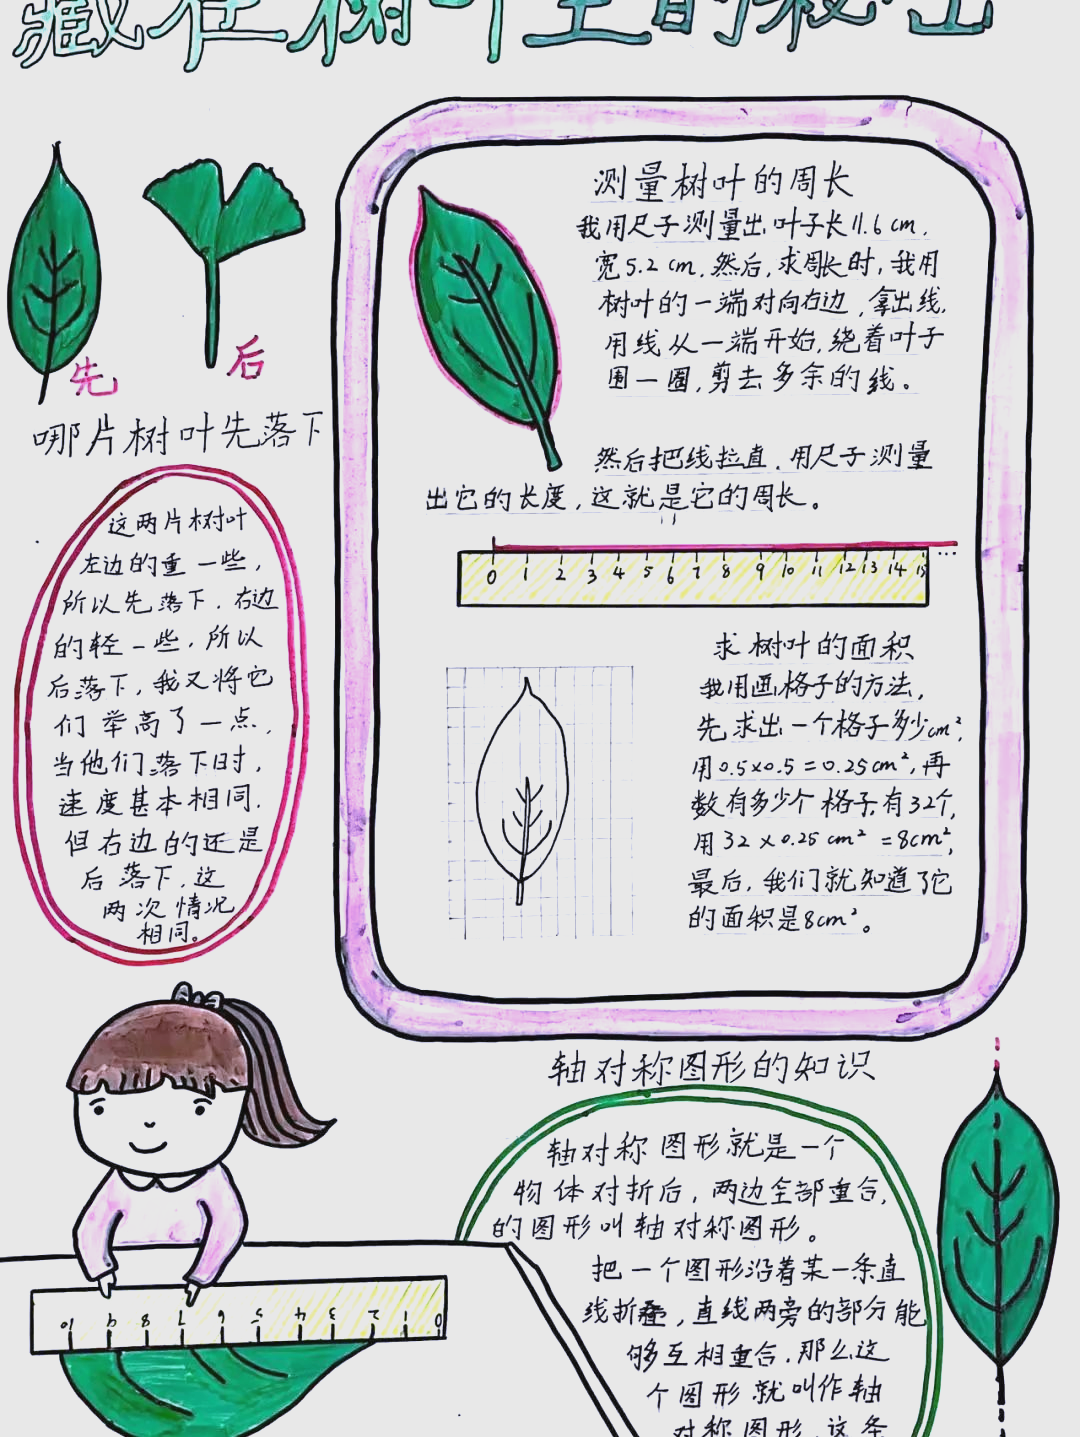 藏在树叶里的秘密
先
后
哪片树叶先落下
这两片树叶
左边的重一些，
所以先落下，右边
的轻一些，所以
后落下，我又将它
们举高了一点，
当他们落下时，
速度基本相同，
但右边的还是
后落下，这
两次情况
相同。
测量树叶的周长
我用尺子测量出叶子长11.6cm，
宽5.2cm，然后，求周长时，我用
树叶的一端对向右边，拿出线，
用线从一端开始，绕着叶子
围一圈，剪去多余的线。
然后把线拉直，用尺子测量
出它的长度，这就是它的周长。
0 1 2 3 4 5 6 7 8 9 10 11 12 13 14 15 ...
求树叶的面积
我用画格子的方法，
先求出一个格子多少cm²，
用0.5×0.5=0.25cm²，再
数有多少个格子，有32个，
用32×0.25cm²=8cm²，
最后，我们就知道了它
的面积是8cm²。
轴对称图形的知识
轴对称图形就是一个
物体对折后，两边全部重合，
的图形叫轴对称图形。
把一个图形沿着某一条直
线折叠，直线两旁的部分能
够互相重合，那么这
个图形就叫作轴
对称图形，这条
10 9 8 7 6 5 4 3 2 1 0